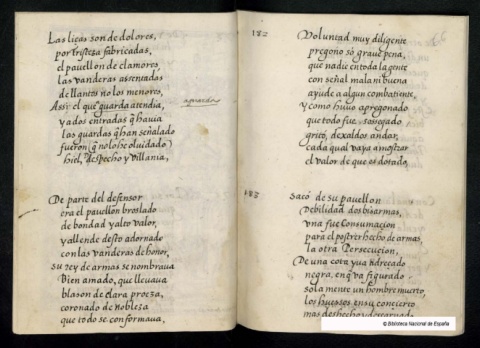 Las liças son de dolores,
por tristeza fabricadas,
el pauellon de clamores,
las vanderas assentadas
de llantos no los menores,
Assi el que guarda atendia,
aguarda
y a dos entradas q̃ hauia
los guardas q̃ han señalado
fueron (q̃ no lo he oluidado)
hiel, despecho y villania,
De parte del defensor
era el pauellon broslado
de bondad y alto valor,
y allende desto adornado
con las vanderas de honor,
su rey de armas se nombraua
Bien amado, que lleuaua
blason de clara proeza,
coronado de nobleza
que todo se conformaua,
182
Voluntad muy diligente
pregono so graue pena,
que nadie en toda la gente
con señal mala ni buena
ayude a algun combatiente,
Y como huuo apregonado
que todo fue sossegado
grito, dexaldos andar,
cada qual vaya a mostrar
el valor de que es dotado,
183
Sacó de su pauellon
Debilidad dos bisarmas,
vna fue Consumacion
para el postrer hecho de armas
la otra Persecucion,
De una cota yua adreçado
negra, en q̃ va figurado
sola mente un hombre muerto,
los huessos en su concierto
mas deshecho y descarnado
© Biblioteca Nacional de España